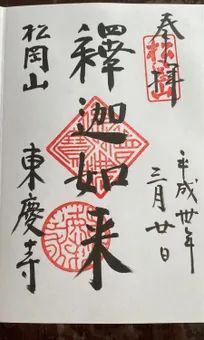 奉拝
平成卅年
三月廿日
釋迦如来
松岡山
東慶寺